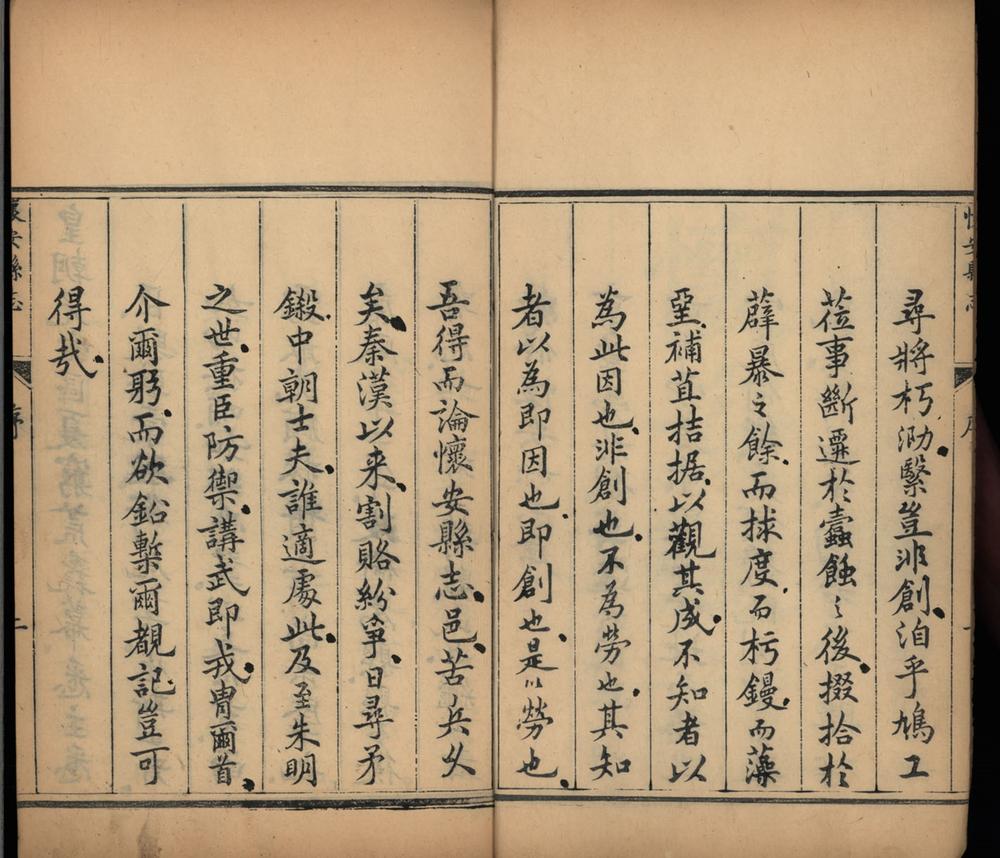 尋將朽泐繄豈非創洎乎鳩工
蒞事斷遷於蠹蝕之後掇拾於
薜暴之餘而捄度而杇鏝而藻
堊補苴拮据以觀其成不知者以
為此因也非創也不為勞也其知
者以為即因也即創也是以勞也
吾得而論懷安縣志邑苦兵久
矣秦漢以来割賂紛爭日尋矛
鎩中朝士夫誰適處此及至朱明
之世重臣防禦講武即戎冑爾首
介爾躬而欲鉛槧爾覩記豈可
得哉
懷安縣志
序
二